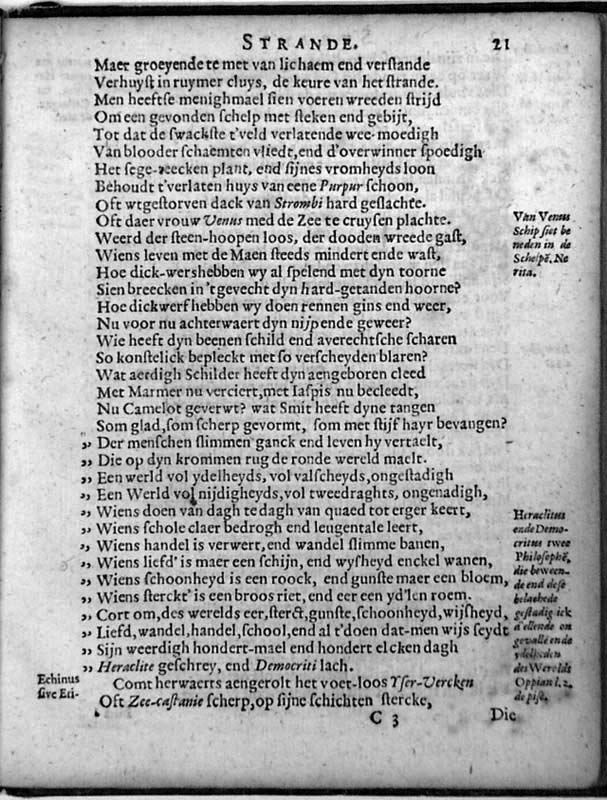 STRANDE. 21
Maer groeyende te met van lichaem end verstande
Verhuyst in ruymer cluys, de keure van het strande.
Men heeftse menighmael sien voeren wreeden strijd
Om een gevonden schelp met steken end gebijt,
Tot dat de swackste t'veld verlatende wee-moedigh
Van blooder schaemten vliedt, end d'overwinner spoedigh
Het sege-teecken plant, end sijnes vromheyds loon
Behoudt t'verlaten huys van eene Purpur schoon,
Oft wtgestorven dack van Strombi hard geslachte.
Oft daer vrouw Venus med de Zee te cruysen plachte.
Van Venus
Schip siet be
neden in de
Schelpē, Ne
rita.
Weerd der steen-hoopen loos, der dooden wreede gast,
Wiens leven met de Maen steeds mindert ende wast,
Hoe dick-wers hebben wy al spelend met dyn toorne
Sien breecken in 't gevecht dyn hard-getanden hoorne?
Hoe dickwerf hebben wy doen rennen gins end weer,
Nu voor nu achterwaert dyn nijpende geweer?
Wie heeft dyn beenen schild end averechtsche scharen
So konstelick bepleckt met so verscheyden blaren?
Wat aerdigh Schilder heeft dyn aengeboren cleed
Met Marmer nu verciert, met Iaspis nu becleedt,
Nu Camelot geverwt? wat Smit heeft dyne tangen
Som glad, som scherp gevormt, som met stijf hayr bevangen?
,, Der menschen slimmen ganck end leven hy vertaelt,
,, Die op dyn krommen rug de ronde wereld maelt.
,, Een werld vol ydelheyds, vol valscheyds, ongestadigh
,, Een Werld vol nijdigheyds, vol tweedraghts, ongenadigh,
,, Wiens doen van dagh te dagh van quaed tot erger keert,
,, Wiens schole claer bedrogh end leugentale leert,
,, Wiens handel is verwert, end wandel slimme banen,
,, Wiens liefd' is maer een schijn, end wysheyd enckel wanen,
,, Wiens schoonheyd is een roock, end gunste maer een bloem,
,, Wiens sterckt' is een broos riet, end eer een yd'len roem.
,, Cort om, des werelds eer, sterct, gunste, schoonheyd, wijsheyd,
,, Liefd, wandel, handel, school, end al t'doen dat-men wijs seydt
,, Sijn weerdigh hondert-mael end hondert elcken dagh
,, Heraclite geschrey, end Democriti lach.
Heraclitus
ende Demo-
critus twee
Philosophē,
die beween-
de end dese
belachede
gestadig ick
d'ellende on
gevallē ende
ydelheden
des Werelds
Oppian l. 2.
de pisc.
Echinus
sive Eri-
Comt herwaerts aengerolt het voet-loos Yser-Vercken
Oft Zee-castanie scherp, op sijne schichten stercke,
C 3 Die